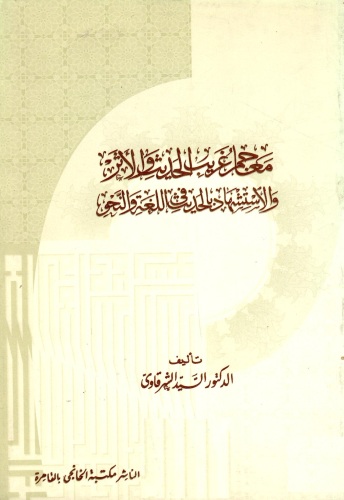 معاجم غريب الحديث والأثر
والاستشهاد بالحديث في اللغة والنحو
تأليف
الدكتور السيد الشرقاوى
الناشر مكتبة الخانجى بالقاهرة